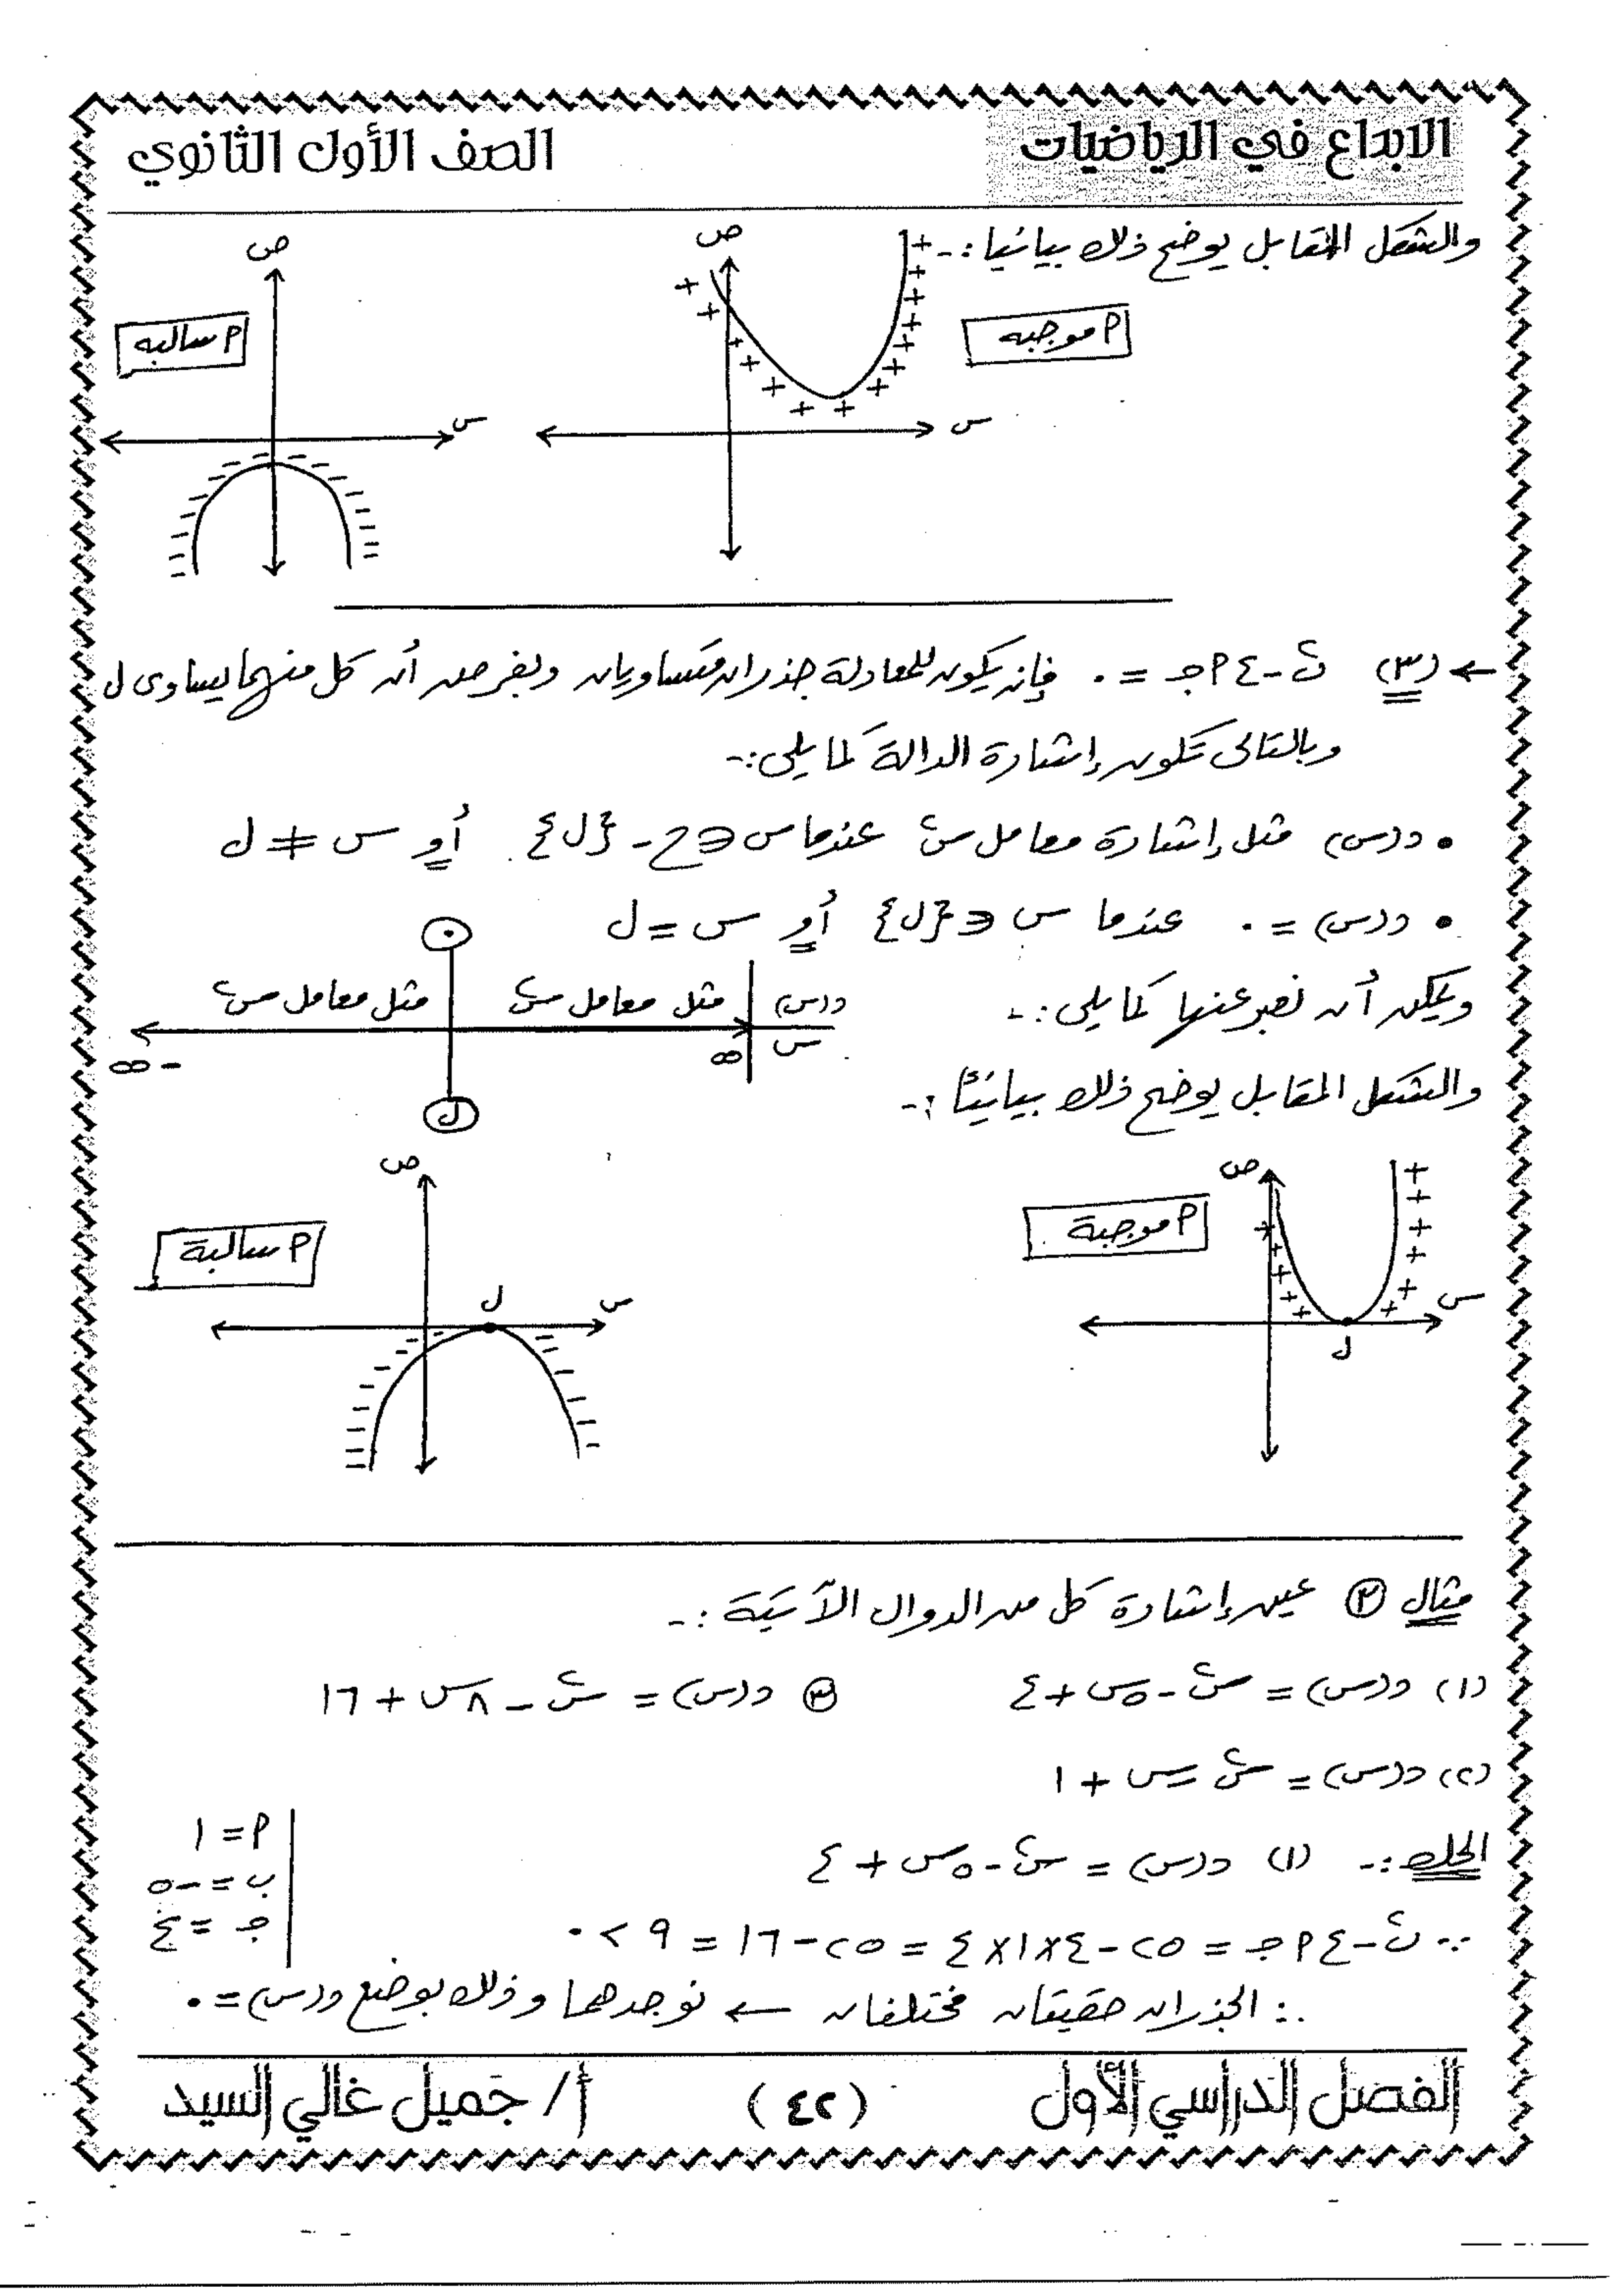 الابداع في الرياضيات
الصف الأول الثانوي
والشكل المقابل يوضح ذلك بيانيا :-
ص
س
أ موجبه
+ + + + + + + + + + + + + + + +
ص
س
أ سالبه
- - - - - - - - - - - - - - - -
← (٣) ب٢ - ٤ أ جـ = ٠ فإنه يكون للمعادلة جذران متساويان وبفرض أن كل منهما يساوى ل
وبالتالى تكون إشارة الدالة كما يلى :-
• د(س) مثل إشارة معامل س٢ عندما س ∈ ح - {ل} أو س ≠ ل
• د(س) = ٠ عندما س ∈ {ل} أو س = ل
ويمكن أن نعبر عنها كما يلى :-
د(س) مثل معامل س٢ ٠ مثل معامل س٢
س ∞ ل - ∞
والشكل المقابل يوضح ذلك بيانيًا :-
ص
س
ل
أ موجبة
+ + + + + + + + + + +
ص
س
ل
أ سالبة
- - - - - - - - - - - - -
مثال ٢ عين إشارة كل من الدوال الآتية :-
(١) د(س) = س٢ - ٥س + ٤
٣ د(س) = س٢ - ٨س + ١٦
(٢) د(س) = س٢ - س + ١
الحل :- (١) د(س) = س٢ - ٥س + ٤
أ = ١
ب = -٥
جـ = ٤
∵ ب٢ - ٤ أ جـ = ٢٥ - ٤×١×٤ = ٢٥ - ١٦ = ٩ > ٠
∴ الجذران حقيقان مختلفان ← نوجدهما وذلك بوضع د(س) = ٠
الفصل الدراسي الأول
(٤٢)
أ/ جميل غالي السيد